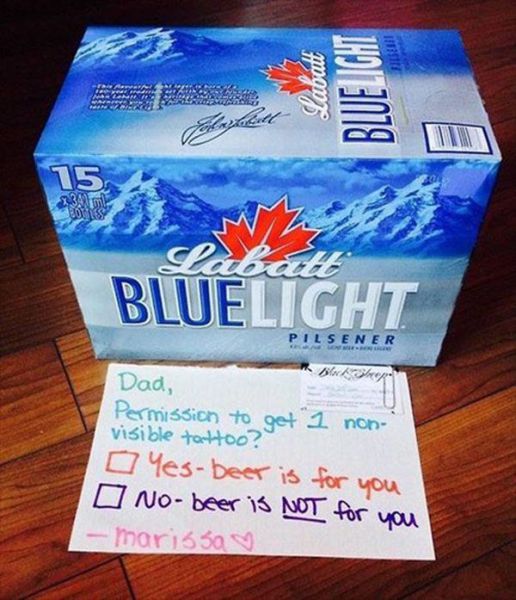 Labatt
BLUE LIGHT
PILSENER
John Labatt
15
x 341 ml
BOTTLES
Labatt
BLUELIGHT
PILSENER
Black Sheep
Dad,
Permission to get 1 non-
visible tattoo?
Yes-beer is for you
No-beer is NOT for you
-marissa